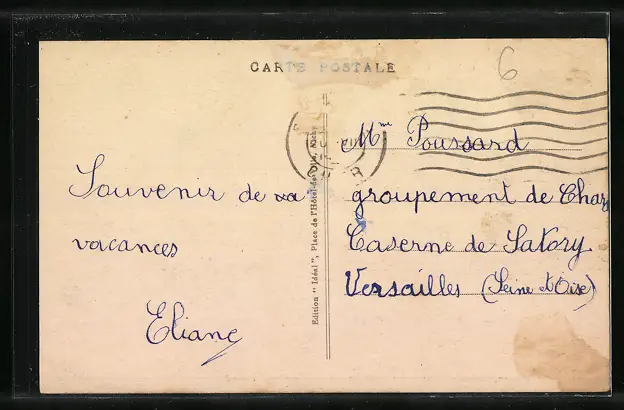 CARTE POSTALE
6
Souvenir de va
vacances
Eliane
Edition " Idéal ", Place de l'Hôtel-de-Ville, Vichy
Mme Poussard
groupement de Char
Caserne de Satory
Versailles (Seine et Oise)